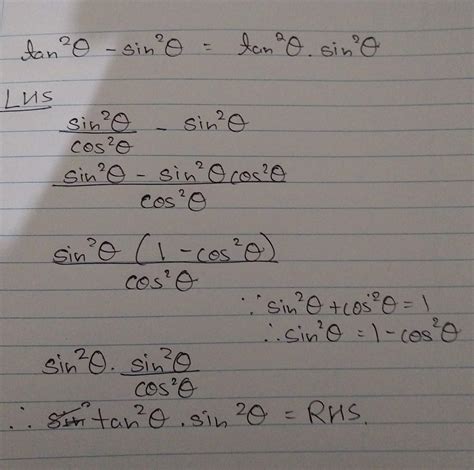 tan²θ - sin²θ = tan²θ . sin²θ
LHS
sin²θ/cos²θ - sin²θ
sin²θ - sin²θcos²θ/cos²θ
sin²θ (1 - cos²θ)/cos²θ
∵ sin²θ + cos²θ = 1
∴ sin²θ = 1 - cos²θ
sin²θ . sin²θ/cos²θ
∴ sin² tan²θ . sin²θ = RHS.